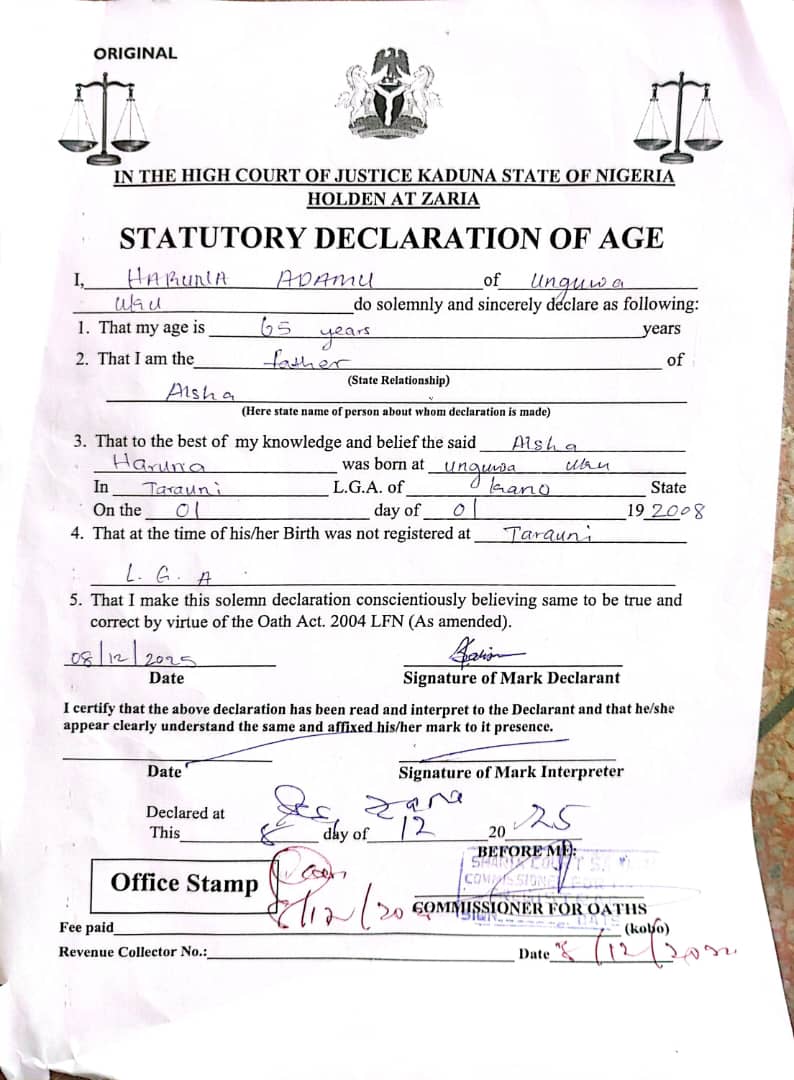 ORIGINAL
IN THE HIGH COURT OF JUSTICE KADUNA STATE OF NIGERIA
HOLDEN AT ZARIA
STATUTORY DECLARATION OF AGE
I, HARUNA ADAMU of Unguwa
uku do solemnly and sincerely declare as following:
1. That my age is 65 years years
2. That I am the father of
(State Relationship)
Aisha
(Here state name of person about whom declaration is made)
3. That to the best of my knowledge and belief the said Aisha
Haruna was born at unguwa uku
In Tarauni L.G.A. of kano State
On the 01 day of 01 19 2008
4. That at the time of his/her Birth was not registered at Tarauni
L. G. A
5. That I make this solemn declaration conscientiously believing same to be true and
correct by virtue of the Oath Act. 2004 LFN (As amended).
08/12/2025
Date Signature of Mark Declarant
I certify that the above declaration has been read and interpret to the Declarant and that he/she
appear clearly understand the same and affixed his/her mark to it presence.
Date Signature of Mark Interpreter
Declared at
This 8 day of 12 20 25
BEFORE ME:
SHARIA COURT
COMMISSIONER FOR
Office Stamp
COMMISSIONER FOR OATHS
Fee paid (kobo)
Revenue Collector No.: Date 8/12/